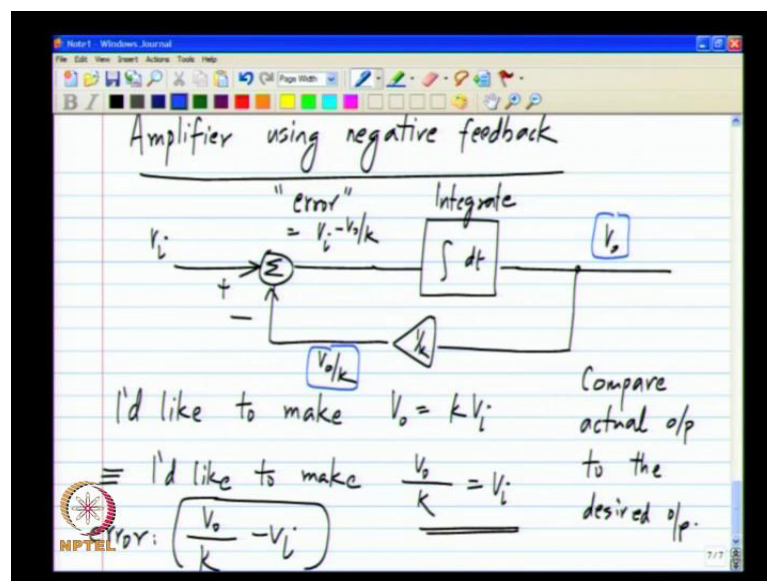 Note1 - Windows Journal
File Edit View Insert Actions Tools Help
Page Width
B I
Amplifier using negative feedback
"error" Integrate
= Vi - Vo/k
Vi
Σ
∫ dt
Vo
+
−
1/k
Vo/k
I'd like to make Vo = k Vi
≡ I'd like to make Vo/k = Vi
error: (Vo/k − Vi)
Compare
actual o/p
to the
desired o/p.
NPTEL
7/7